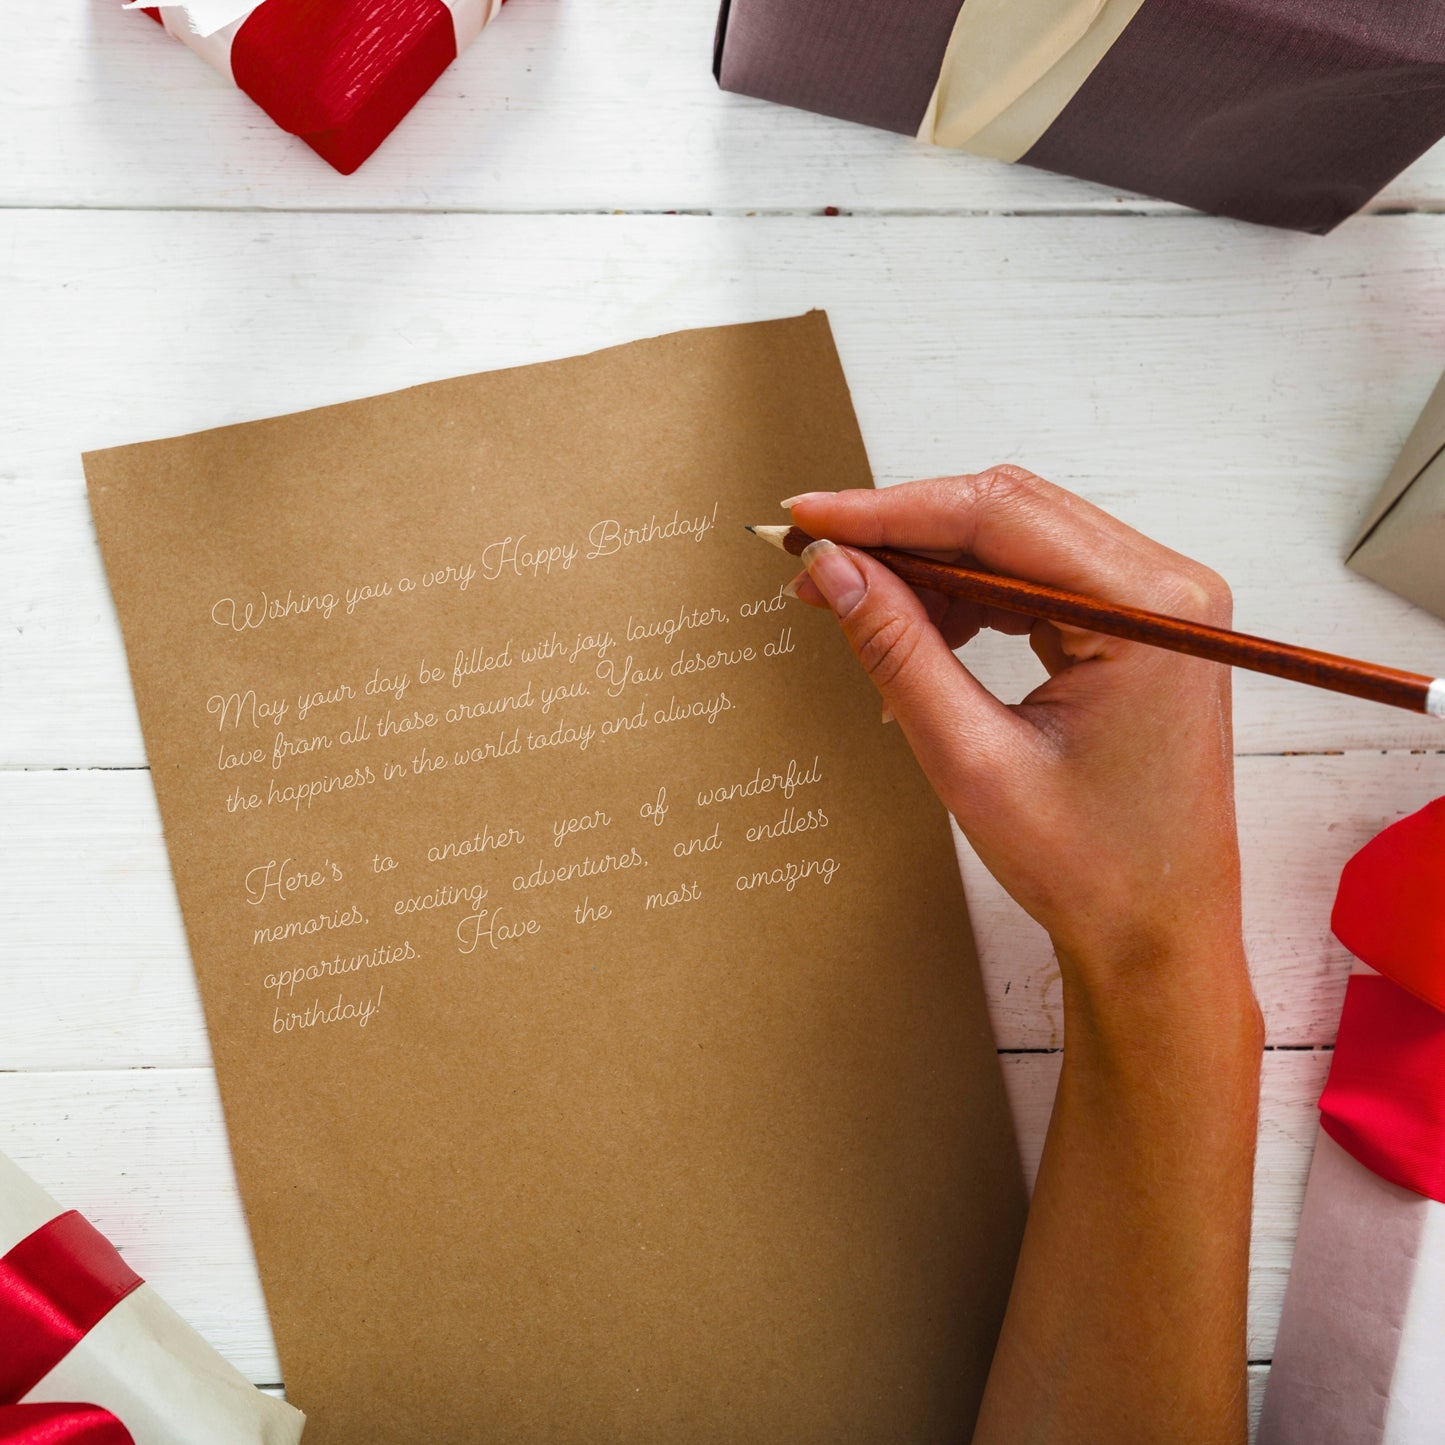 Wishing you a very Happy Birthday!
May your day be filled with joy, laughter, and
love from all those around you. You deserve all
the happiness in the world today and always.
Here's to another year of wonderful
memories, exciting adventures, and endless
opportunities. Have the most amazing
birthday!